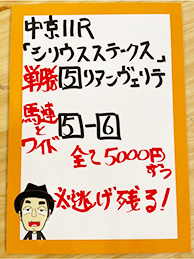 中京11R
「シリウスステークス」
単勝 5 リアンヴェリテ
馬連とワイド 5-6
全て5000円ずつ
※逃げ残る！